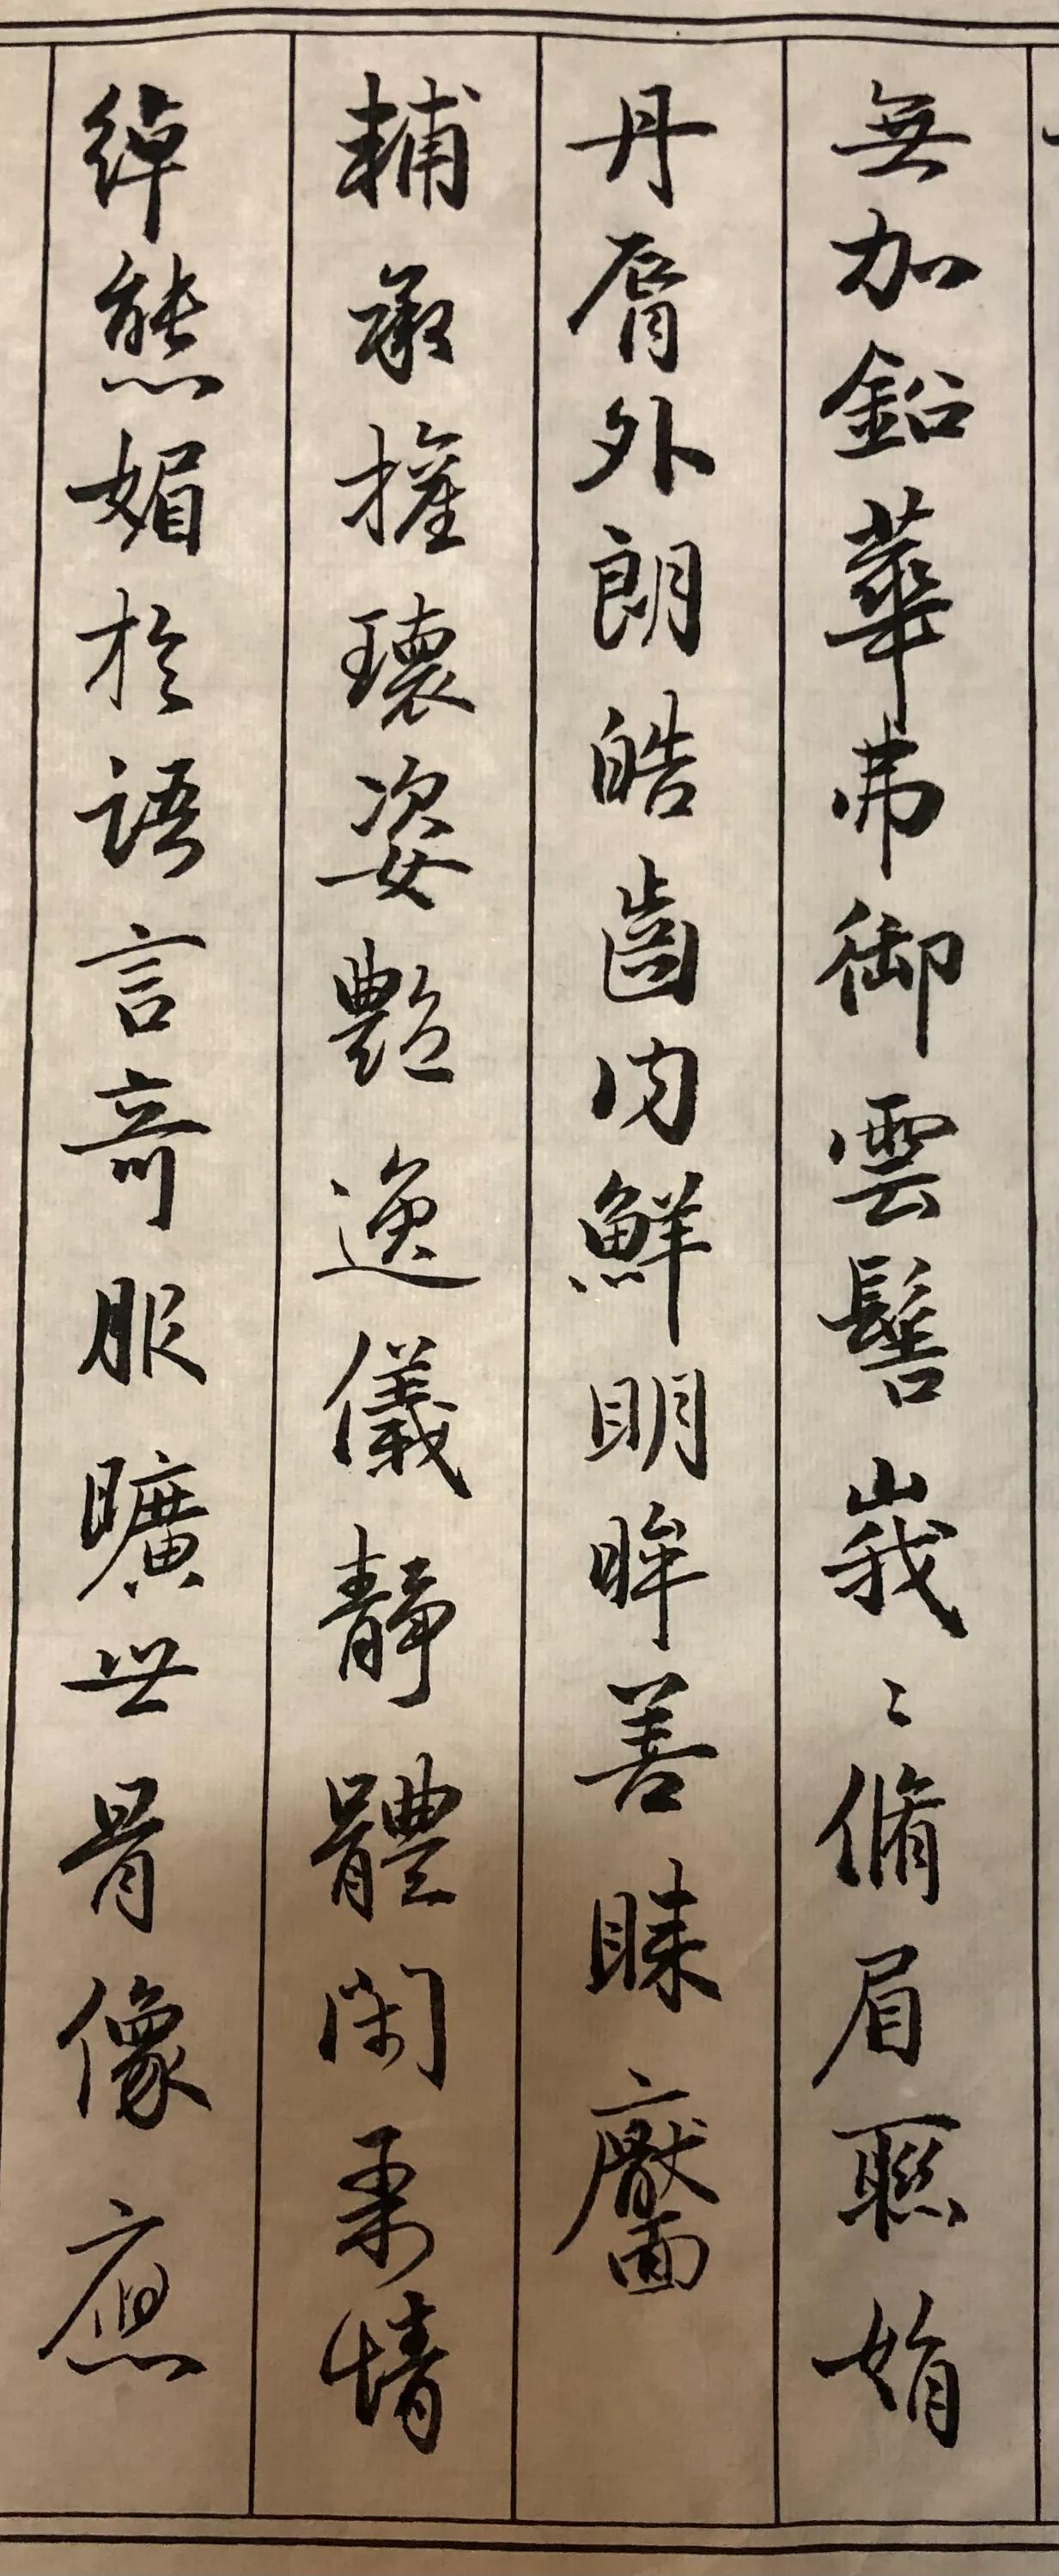 無加鉛華弗御雲髻峩〻脩眉聯娟
丹脣外朗皓齒内鮮明眸善睞靨
輔承權瓌姿艶逸儀靜體閑柔情
綽態媚於語言竒服曠世骨像應